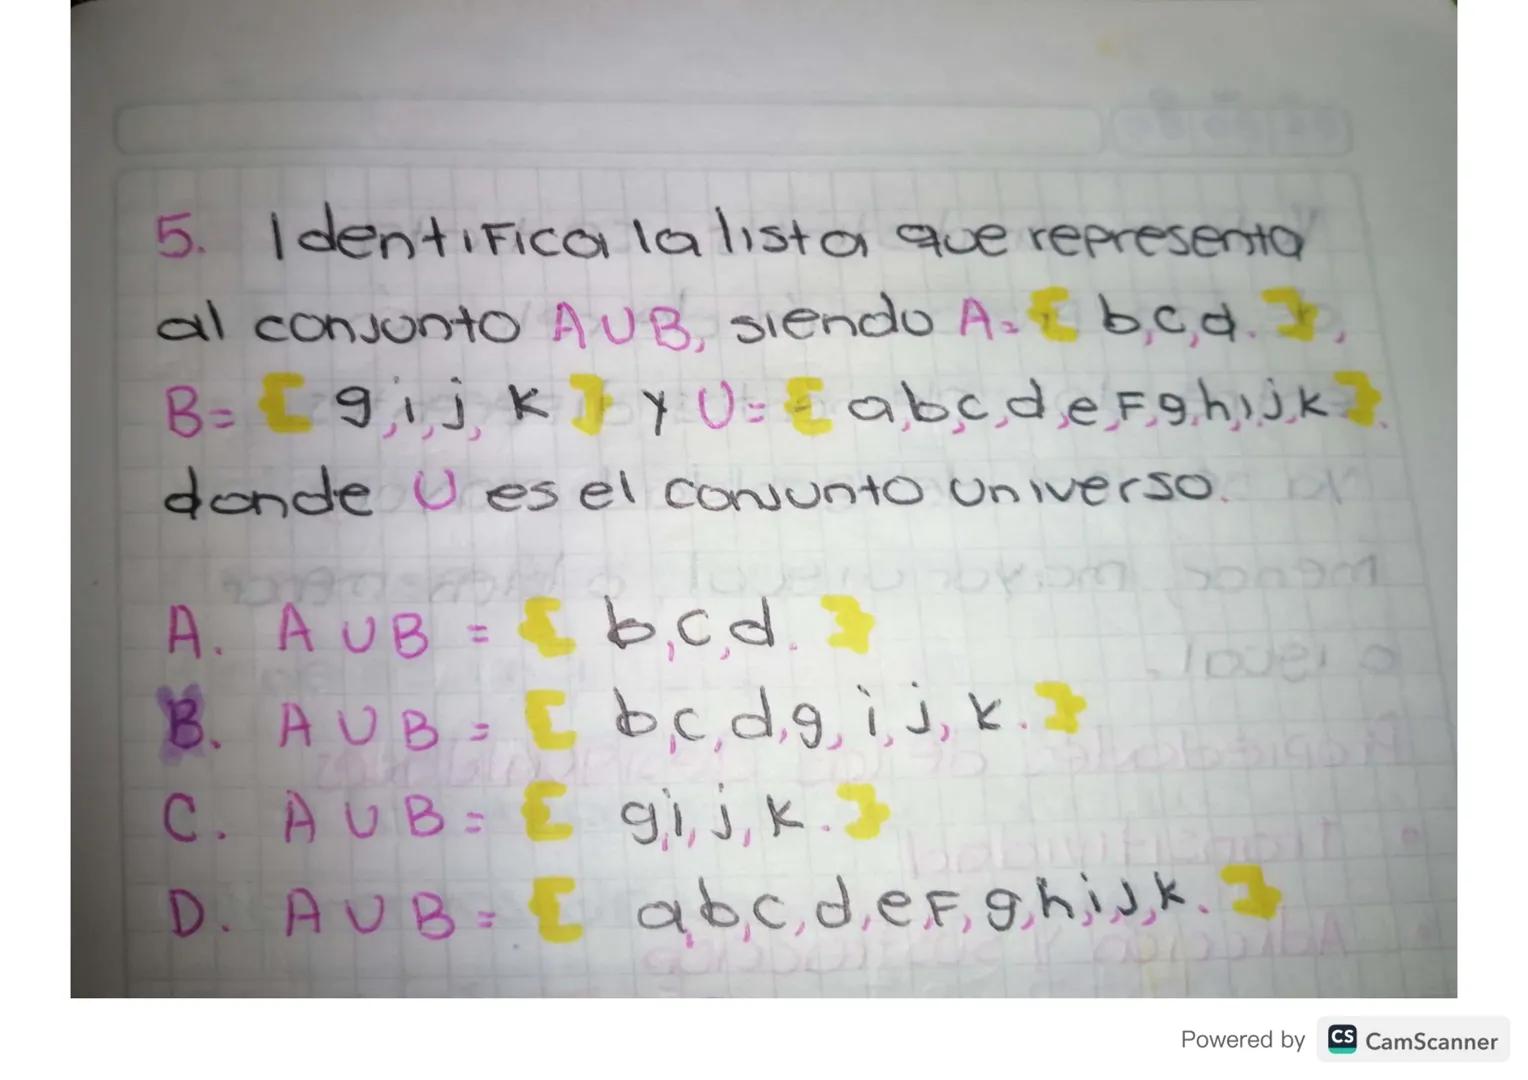 5. Identifica la lista que representa
al conjunto A∪B, siendo A={ b,c,d. },
B={ g,i,j, k } y U={ a,b,c,d,e,F,g,h,i,j,k }.
donde U es el conjunto universo.
A. A∪B = { b,c,d. }
B. A∪B = { b,c,d,g, i, j, k. }
C. A∪B = { g,i, j, k. }
D. A∪B = { a,b,c,d,e,F, g,h,i,j,k. }
Powered by CS CamScanner